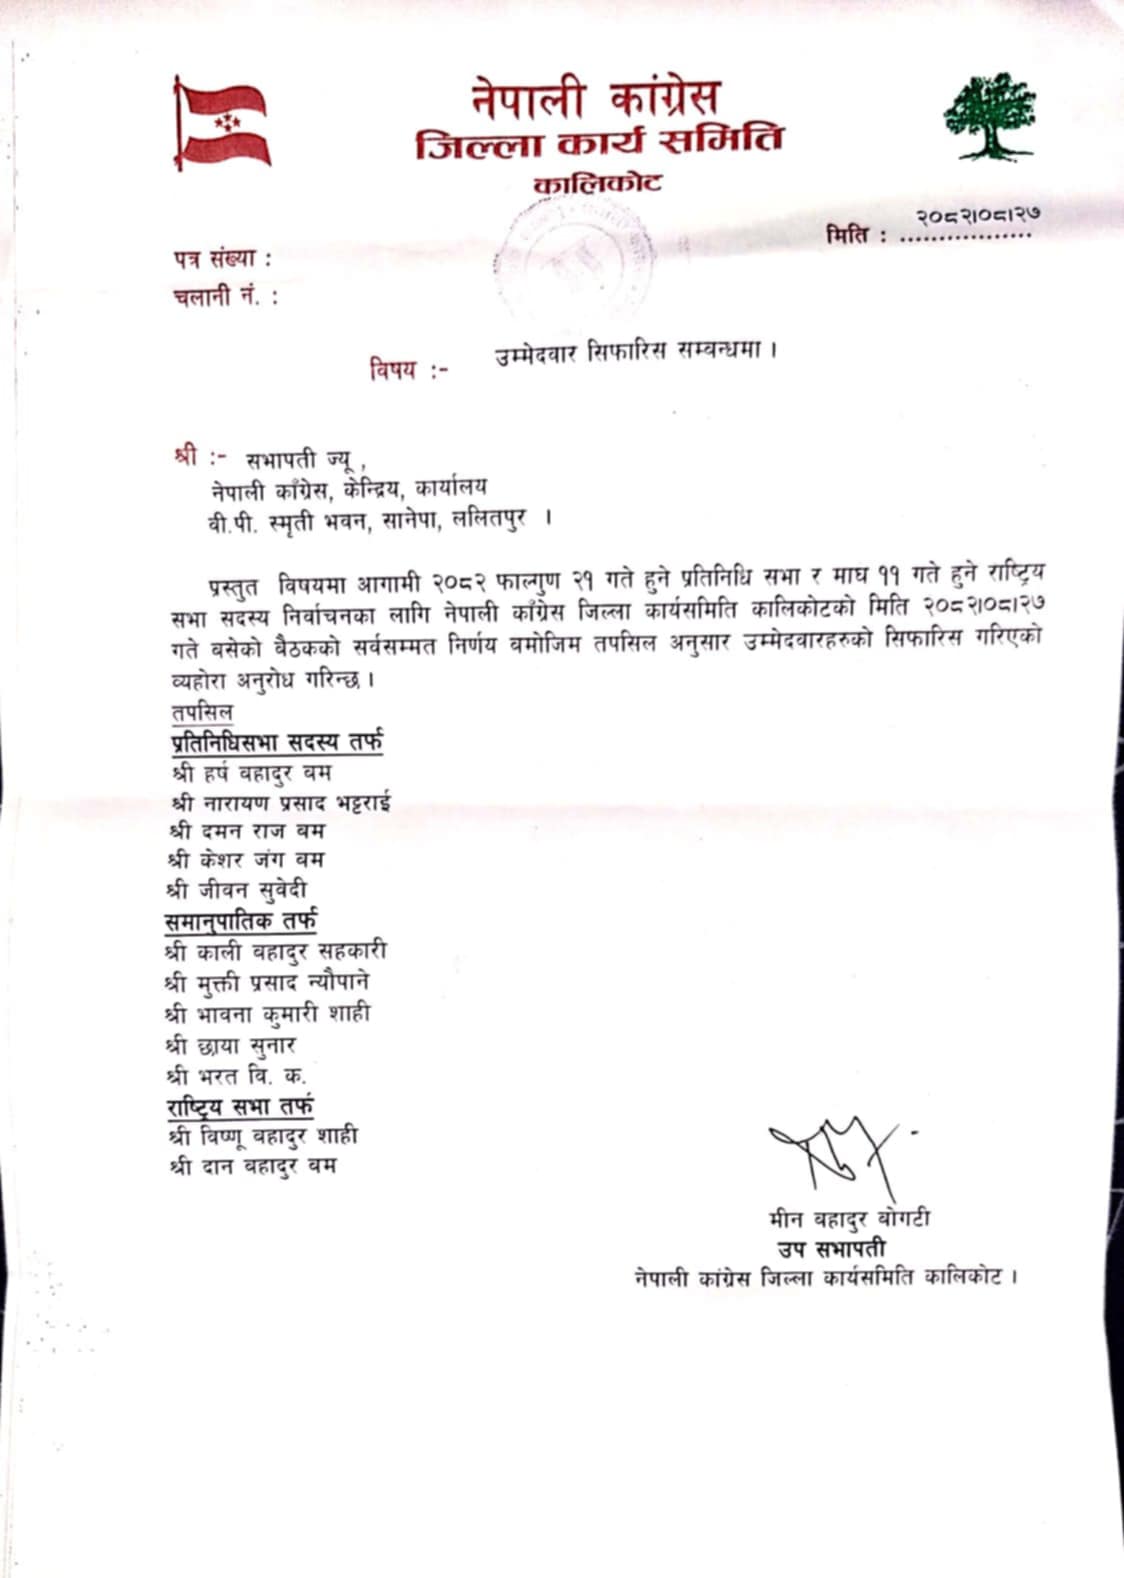 नेपाली कांग्रेस
जिल्ला कार्य समिति
कालिकोट
२०८२।०८।२७
मिति : .................
पत्र संख्या :
चलानी नं. :
विषय :- उम्मेदवार सिफारिस सम्बन्धमा ।
श्री :- सभापती ज्यू ,
नेपाली काँग्रेस, केन्द्रिय, कार्यालय
वी.पी. स्मृती भवन, सानेपा, ललितपुर ।
प्रस्तुत विषयमा आगामी २०८२ फाल्गुण २१ गते हुने प्रतिनिधि सभा र माघ ११ गते हुने राष्ट्रिय
सभा सदस्य निर्वाचनका लागि नेपाली काँग्रेस जिल्ला कार्यसमिति कालिकोटको मिति २०८२।०८।२७
गते बसेको बैठकको सर्वसम्मत निर्णय बमोजिम तपसिल अनुसार उम्मेदवारहरुको सिफारिस गरिएको
व्यहोरा अनुरोध गरिन्छ ।
तपसिल
प्रतिनिधिसभा सदस्य तर्फ
श्री हर्ष बहादुर बम
श्री नारायण प्रसाद भट्टराई
श्री दमन राज बम
श्री केशर जंग बम
श्री जीवन सुवेदी
समानुपातिक तर्फ
श्री काली बहादुर सहकारी
श्री मुक्ती प्रसाद न्यौपाने
श्री भावना कुमारी शाही
श्री छाया सुनार
श्री भरत वि. क.
राष्ट्रिय सभा तर्फ
श्री विष्णू बहादुर शाही
श्री दान बहादुर बम
मीन बहादुर बोगटी
उप सभापती
नेपाली कांग्रेस जिल्ला कार्यसमिति कालिकोट ।